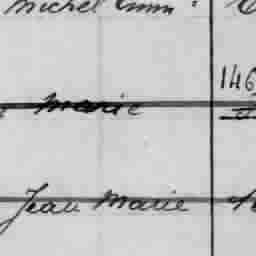 Michel Emm
146
Marie
Jean Marie